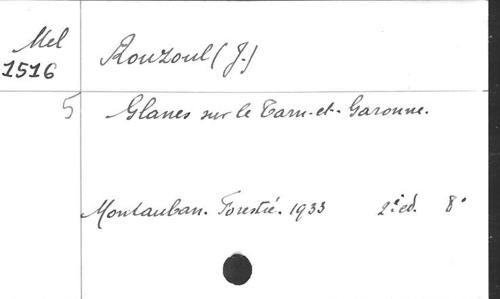 Mel Rouzoul (J.)
1516
5 Glanes sur le Tarn-et-Garonne.
Montauban. Forestié. 1933 2e ed. 8°